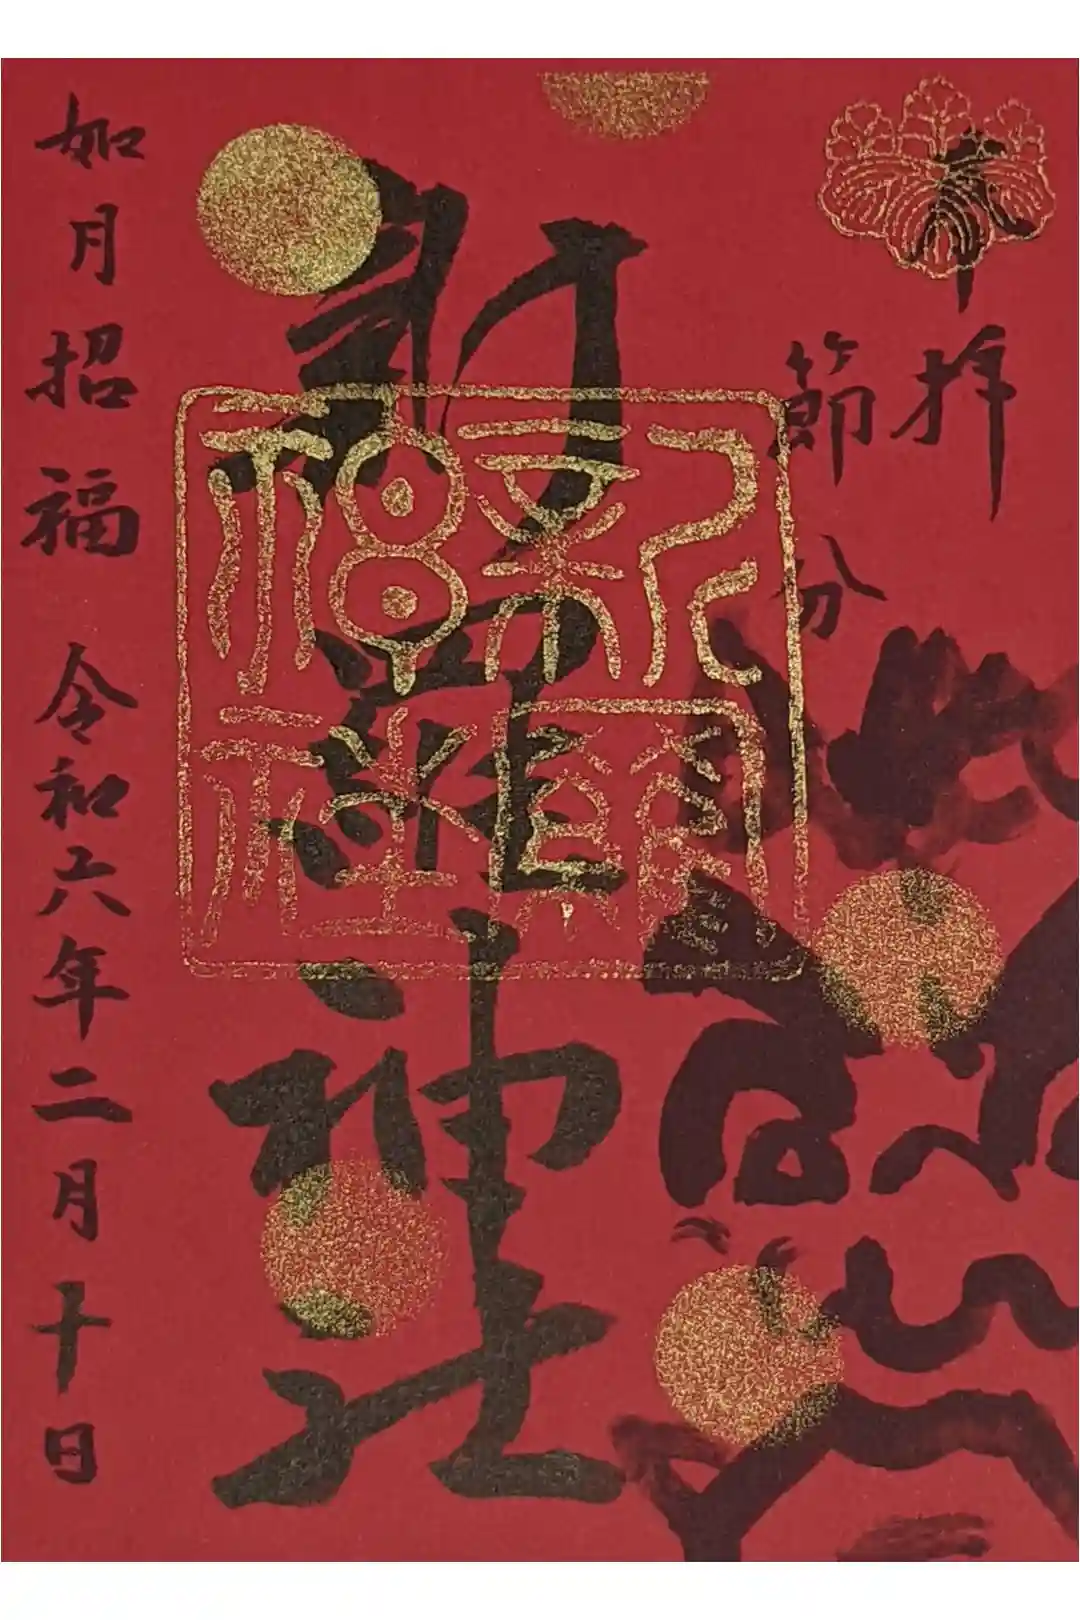 奉拝
節分
新羅神社
如月招福 令和六年二月十日